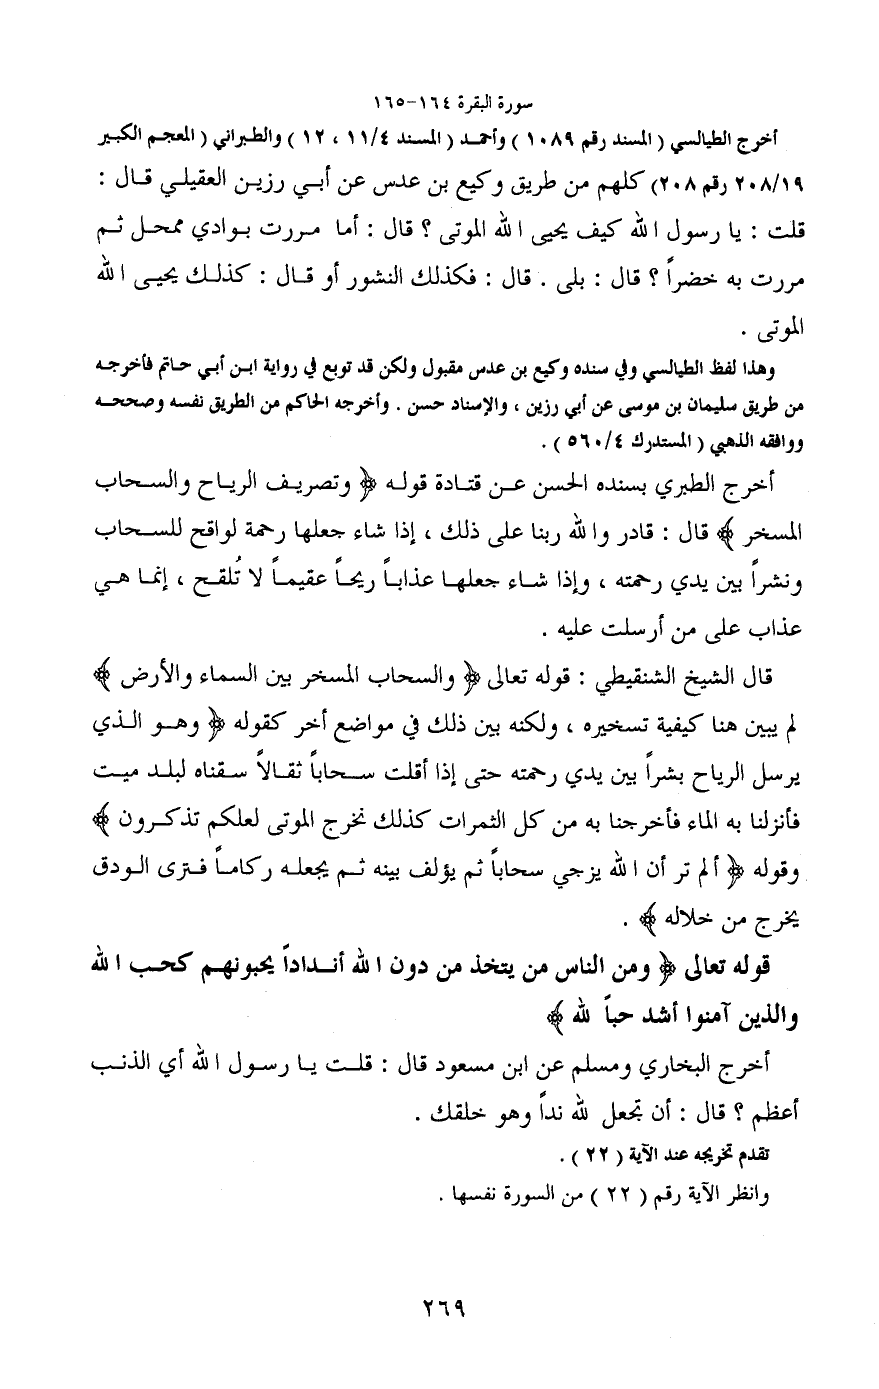 سورة البقرة ١٦٤-١٦٥
أخرج الطيالسي ( المسند رقم ١٠٨٩ ) وأحمد ( المسند ١١/٤ ، ١٢ ) والطبراني ( المعجم الكبير
٢٠٨/١٩ رقم ٢٠٨) كلهم من طريق وكيع بن عدس عن أبي رزين العقيلي قال :
قلت : يا رسول الله كيف يحيى الله الموتى ؟ قال : أما مررت بوادي ممحل ثم
مررت به خضراً ؟ قال : بلى . قال : فكذلك النشور أو قال : كذلك يحيى الله
الموتى .
وهذا لفظ الطيالسي وفي سنده وكيع بن عدس مقبول ولكن قد توبع في رواية ابن أبي حاتم فأخرجه
من طريق سليمان بن موسى عن أبي رزين ، والإسناد حسن . وأخرجه الحاكم من الطريق نفسه وصححه
ووافقه الذهبي ( المستدرك ٥٦٠/٤ ) .
أخرج الطبري بسنده الحسن عن قتادة قوله ﴿ وتصريف الرياح والسحاب
المسخر ﴾ قال : قادر والله ربنا على ذلك ، إذا شاء جعلها رحمة لواقح للسحاب
ونشراً بين يدي رحمته ، وإذا شاء جعلها عذاباً ريحاً عقيماً لا تُلقح ، إنما هي
عذاب على من أرسلت عليه .
قال الشيخ الشنقيطي : قوله تعالى ﴿ والسحاب المسخر بين السماء والأرض ﴾
لم يبين هنا كيفية تسخيره ، ولكنه بين ذلك في مواضع أخر كقوله ﴿ وهو الذي
يرسل الرياح بشراً بين يدي رحمته حتى إذا أقلت سحاباً ثقالاً سقناه لبلد ميت
فأنزلنا به الماء فأخرجنا به من كل الثمرات كذلك نخرج الموتى لعلكم تذكرون ﴾
وقوله ﴿ ألم تر أن الله يزجي سحاباً ثم يؤلف بينه ثم يجعله ركاماً فترى الودق
يخرج من خلاله ﴾ .
قوله تعالى ﴿ ومن الناس من يتخذ من دون الله أنداداً يحبونهم كحب الله
والذين آمنوا أشد حباً لله ﴾
أخرج البخاري ومسلم عن ابن مسعود قال : قلت يا رسول الله أي الذنب
أعظم ؟ قال : أن تجعل لله نداً وهو خلقك .
تقدم تخريجه عند الآية ( ٢٢ ) .
وانظر الآية رقم ( ٢٢ ) من السورة نفسها .
٢٦٩